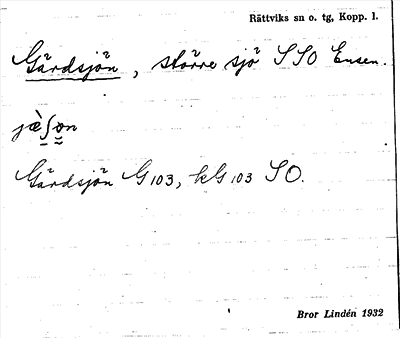 Rättviks sn o. tg, Kopp. l.
Gärdsjön, större sjö SSO Ensen.
jæ̀ʃøn
Gärdsjön G103, kG103 SO.
Bror Lindén 1932